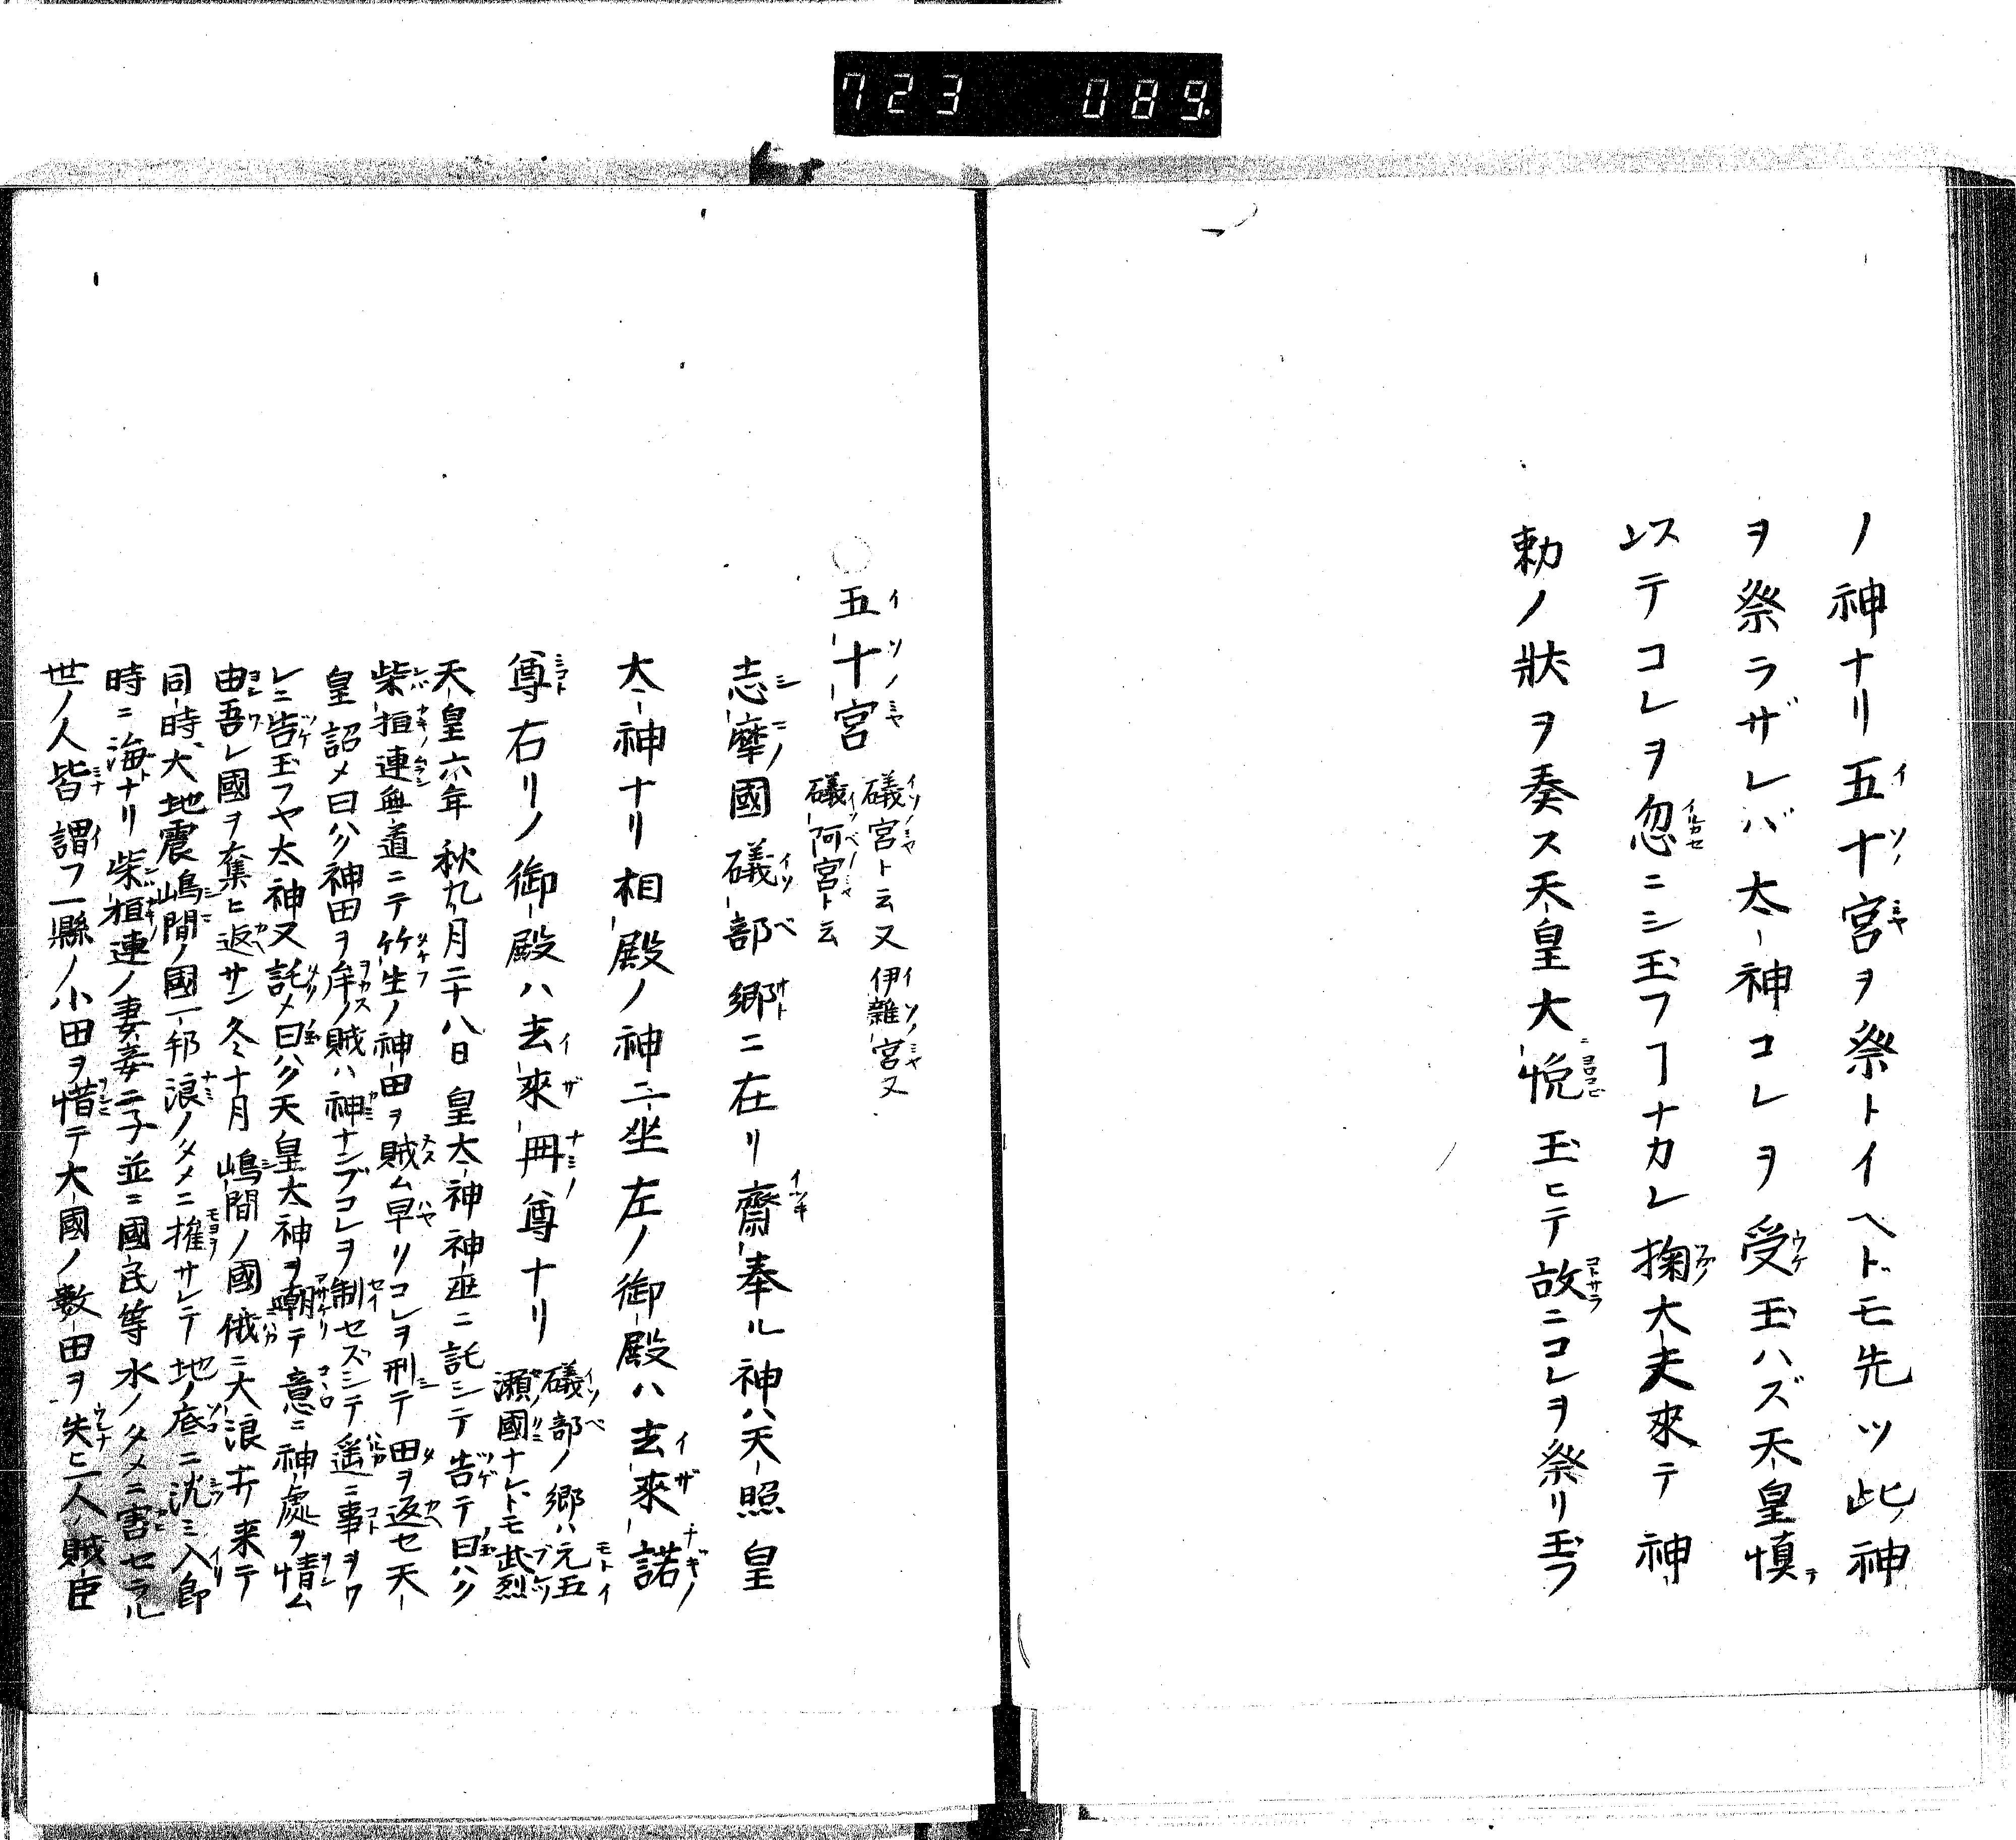 723 089.
ノ神ナリ五十宮ヲ祭トイヘドモ先ツ此ノ神
ヲ祭ラザレバ太神コレヲ受玉ハズ天皇慎テ
以テコレヲ忽ニシ玉フヿナカレ掬大夫來テ神
勅ノ狀ヲ奏ス天皇大ニ悅玉ヒテ故ニコレヲ祭リ玉フ
○五十宮 礒宮ト云又伊雜宮又
礒阿宮ト云
志摩國礒部鄉ニ在リ齋奉ル神ハ天照皇
太神ナリ相殿ノ神二坐左ノ御殿ハ去來諾
尊右リノ御殿ハ去來冊尊ナリ 礒部ノ鄉ハ元五
瀬國ナレドモ武烈
天皇六年秋九月二十八日皇太神神巫ニ託シテ告テ曰ハク
柴垣連無道ニテ竹生ノ神田ヲ賊ム早リコレヲ刑テ田ヲ返セ天
皇詔メ曰ハク神田ヲ牟ノ賊ハ神ナンブコレヲ制セズシテ遥ニ事ヲワ
レニ告玉フヤ太神又託メ曰ハク天皇太神ヲ嘲テ意ニ神處ヲ惜ム
由吾レ國ヲ奪ヒ返サン冬十月嶋間ノ國俄ニ大浪来テ
同時大地震嶋間ノ國一邦浪ノタメニ摧サレテ地ノ底ニ沈ミ入節
時ニ海ナリ柴垣連ノ妻妾二子並ニ國民等水ノタメニ害セラル
世ノ人皆謂フ一縣ノ小田ヲ惜テ大國ノ數田ヲ失ヒ一人ノ賊臣